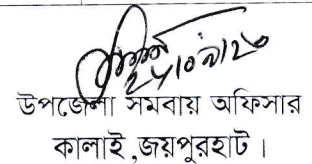 উপজেলা সমবায় অফিসার
কালাই ,জয়পুরহাট ।